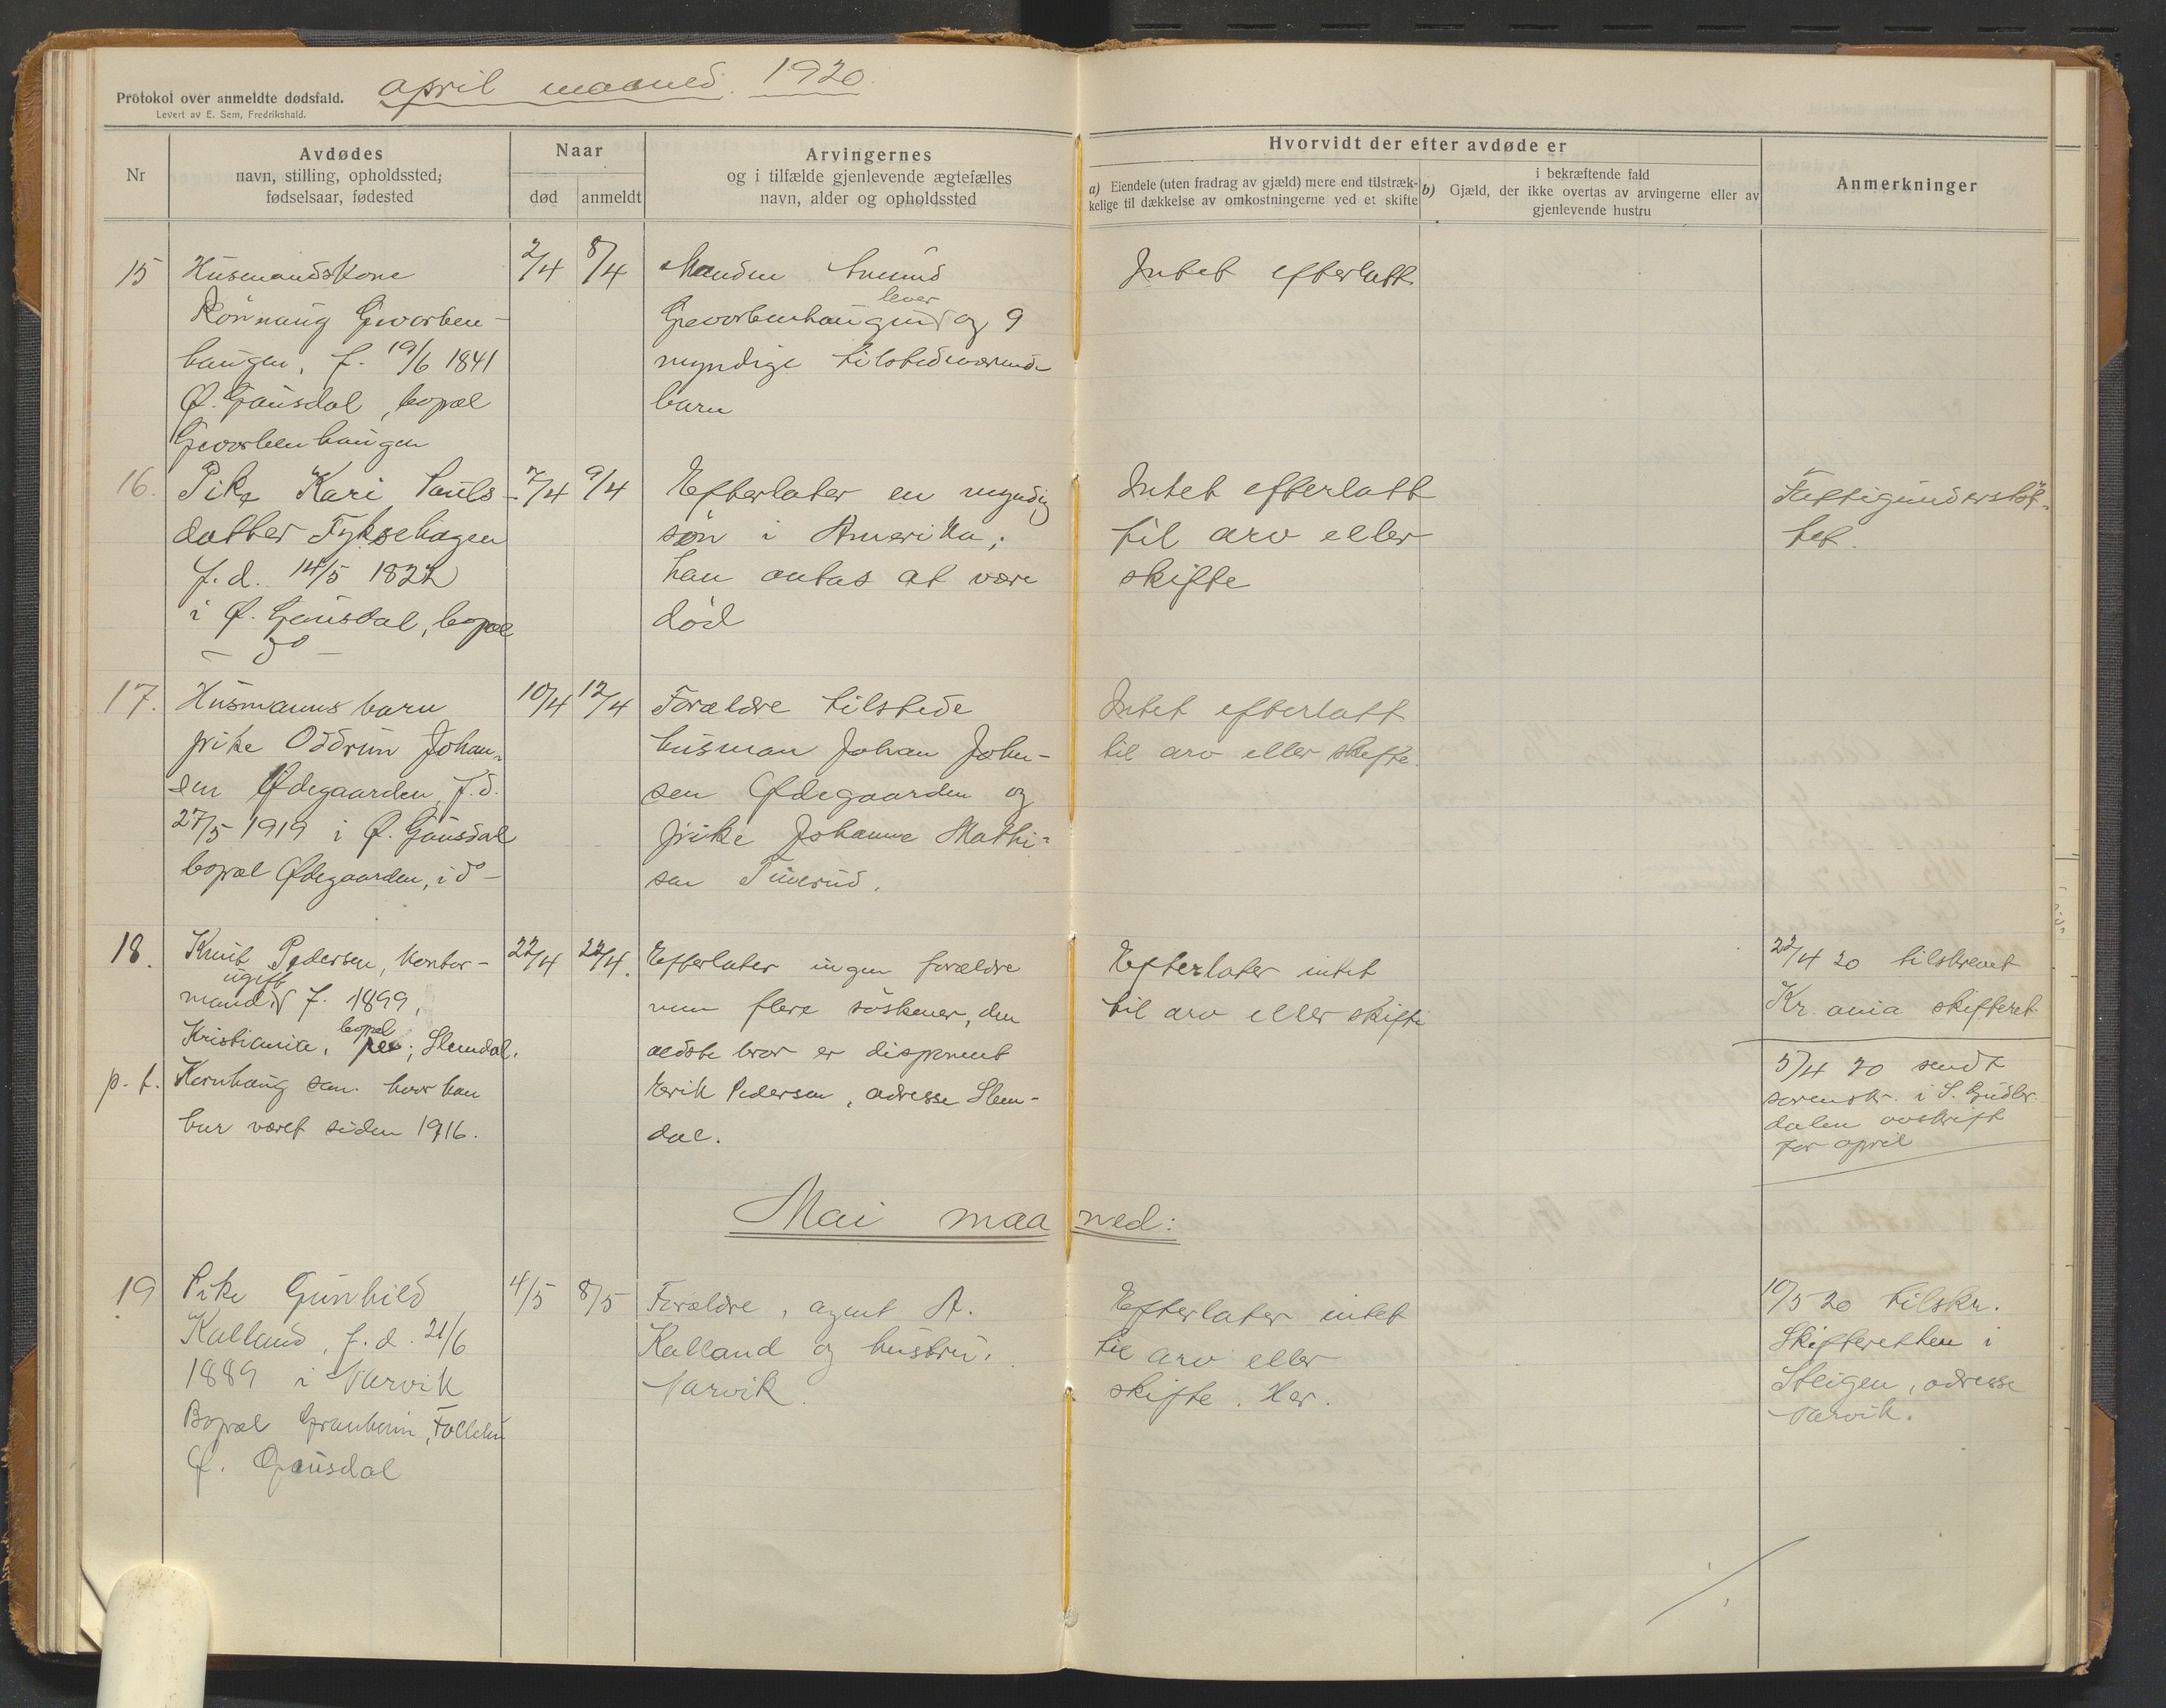 april maaned. 1920.
Protokol over anmeldte dødsfald.
Levert av E. Sem, Fredrikshald.
Nr
Avdødes
navn, stilling, opholdssted;
fødselsaar, fødested
Naar
død
anmeldt
Arvingernes
og i tilfælde gjenlevende ægtefælles
navn, alder og opholdssted
Hvorvidt der efter avdøde er
a) Eiendele (uten fradrag av gjæld) mere end tilstræk-
kelige til dækkelse av omkostningerne ved et skifte
i bekræftende fald
b) Gjæld, der ikke overtas av arvingerne eller av
gjenlevende hustru
Anmerkninger
15
Husmandskone
Rønnaug
haugen, f. 19/6 1841
Ø. Gausdal, bopæl
2/4
8/4
Manden Amund
lever
og 9
myndige tilstedeværende
barn
Intet efterlatt
16.
Pike Kari Pauls-
datter Fyksehagen
f. d. 14/5 1822
i Ø. Gausdal, bopæl
- do -
7/4
9/4
Efterlater en myndig
søn i Amerika;
han antas at være
død
Intet efterlatt
til arv eller
skifte
Fattigunderstøt-
tet.
17.
Husmanns barn
pike Oddrun Johan-
sen Ødegaarden, f. d.
27/5 1919 i Ø. Gausdal
bopæl Ødegaarden, i do -
10/4
12/4
Forældre tilstede
husman Johan Johan-
sen Ødegaarden og
pike Johanne Mathi-
sen
Intet efterlatt
til arv eller skifte.
18.
Knut Pedersen, kontor-
ugift
mand f. 1899,
Kristiania, bopæl; Slemdal.
p. t. Kornhaug san. hvor han
har været siden 1916.
22/4
22/4.
Efterlater ingen forældre
men flere søskener, den
ældste bror er disponent
Erik Pedersen, adresse Slem-
dal.
Efterlater intet
til arv eller skifte
22/4 20 tilskrevet
Kr.ania skifteret
5/4 20 sendt
sorenskr. i S. Gudbr.
dalen avskrift
for april
Mai maaned:
19
Pike Gunhild
Kalland, f. d. 21/6
1889 i Narvik
Bopæl Granheim, Follebu
Ø. Gausdal
4/5
8/5
Forældre, agent A.
Kalland og hustru.
Narvik.
Efterlater intet
til arv eller
skifte. Her.
10/5 20 tilskr.
Skifteretten i
Steigen, adresse
Narvik.